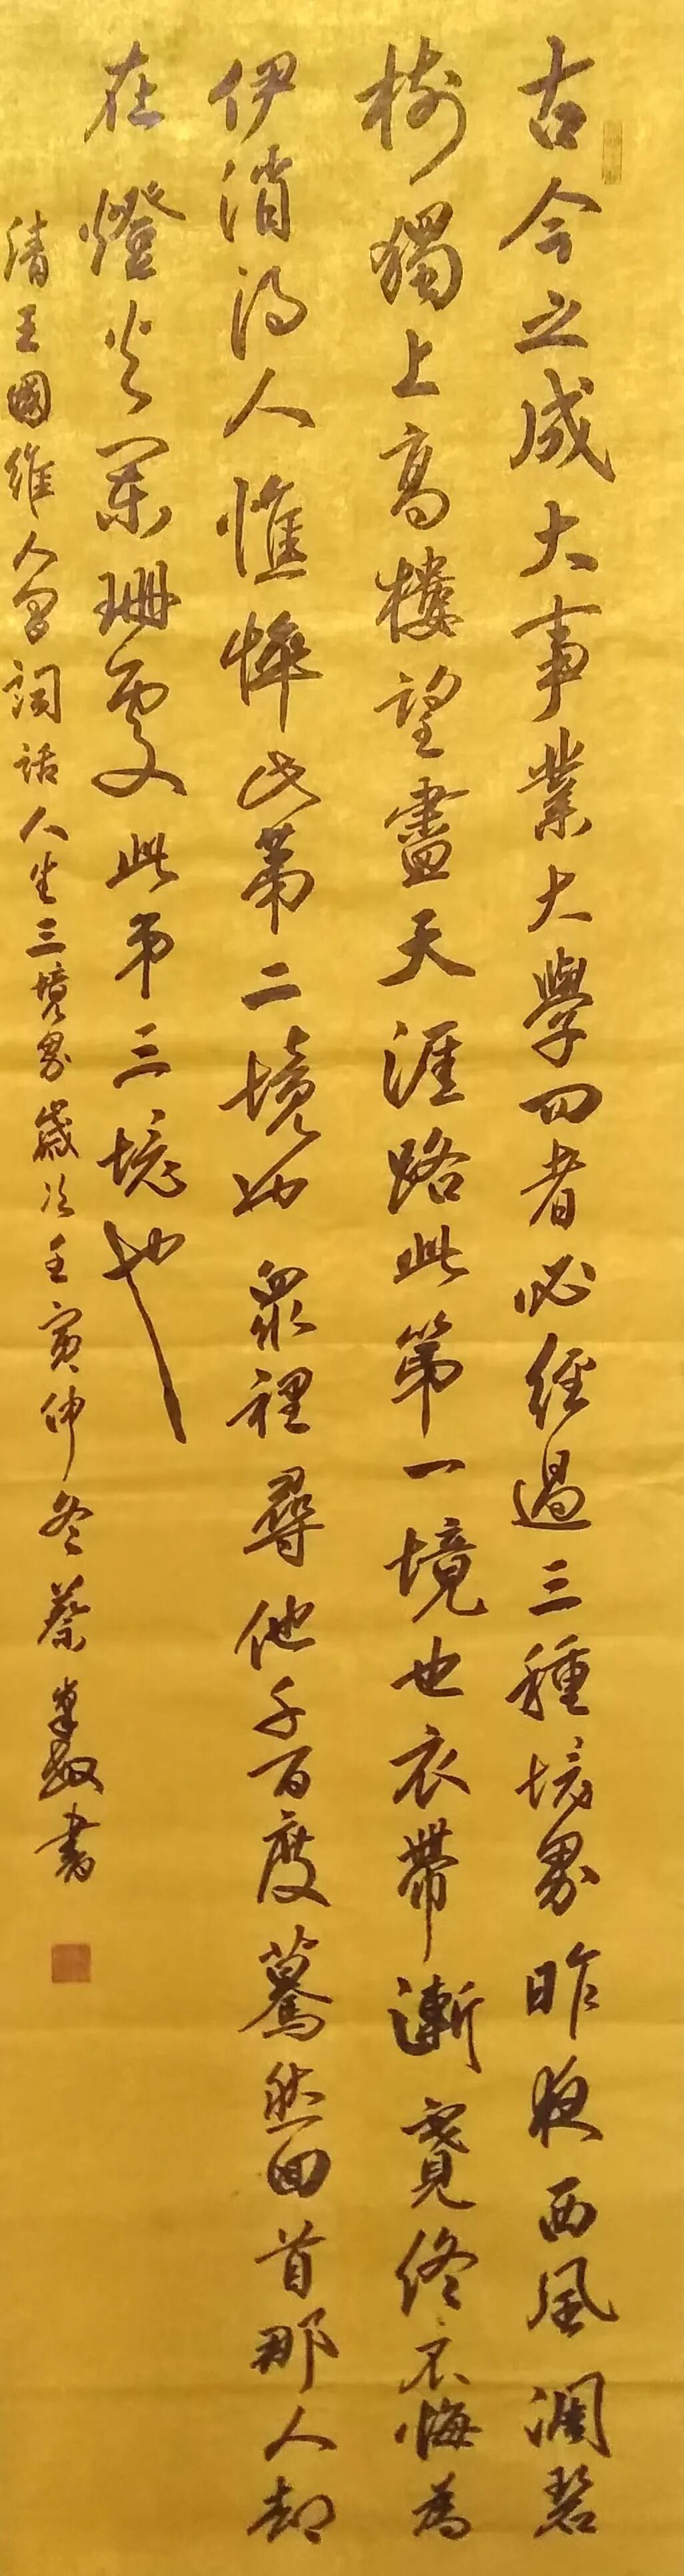 古今之成大事業大學回者必經過三種境界昨夜西風凋碧
樹獨上高樓望盡天涯路此第一境也衣帶漸寬終不悔為
伊消得人憔悴此第二境也眾裡尋他千百度驀然回首那人却
在燈火闌珊處此第三境也
清王國維人間詞話人生三境界歲次壬寅仲冬蔡書